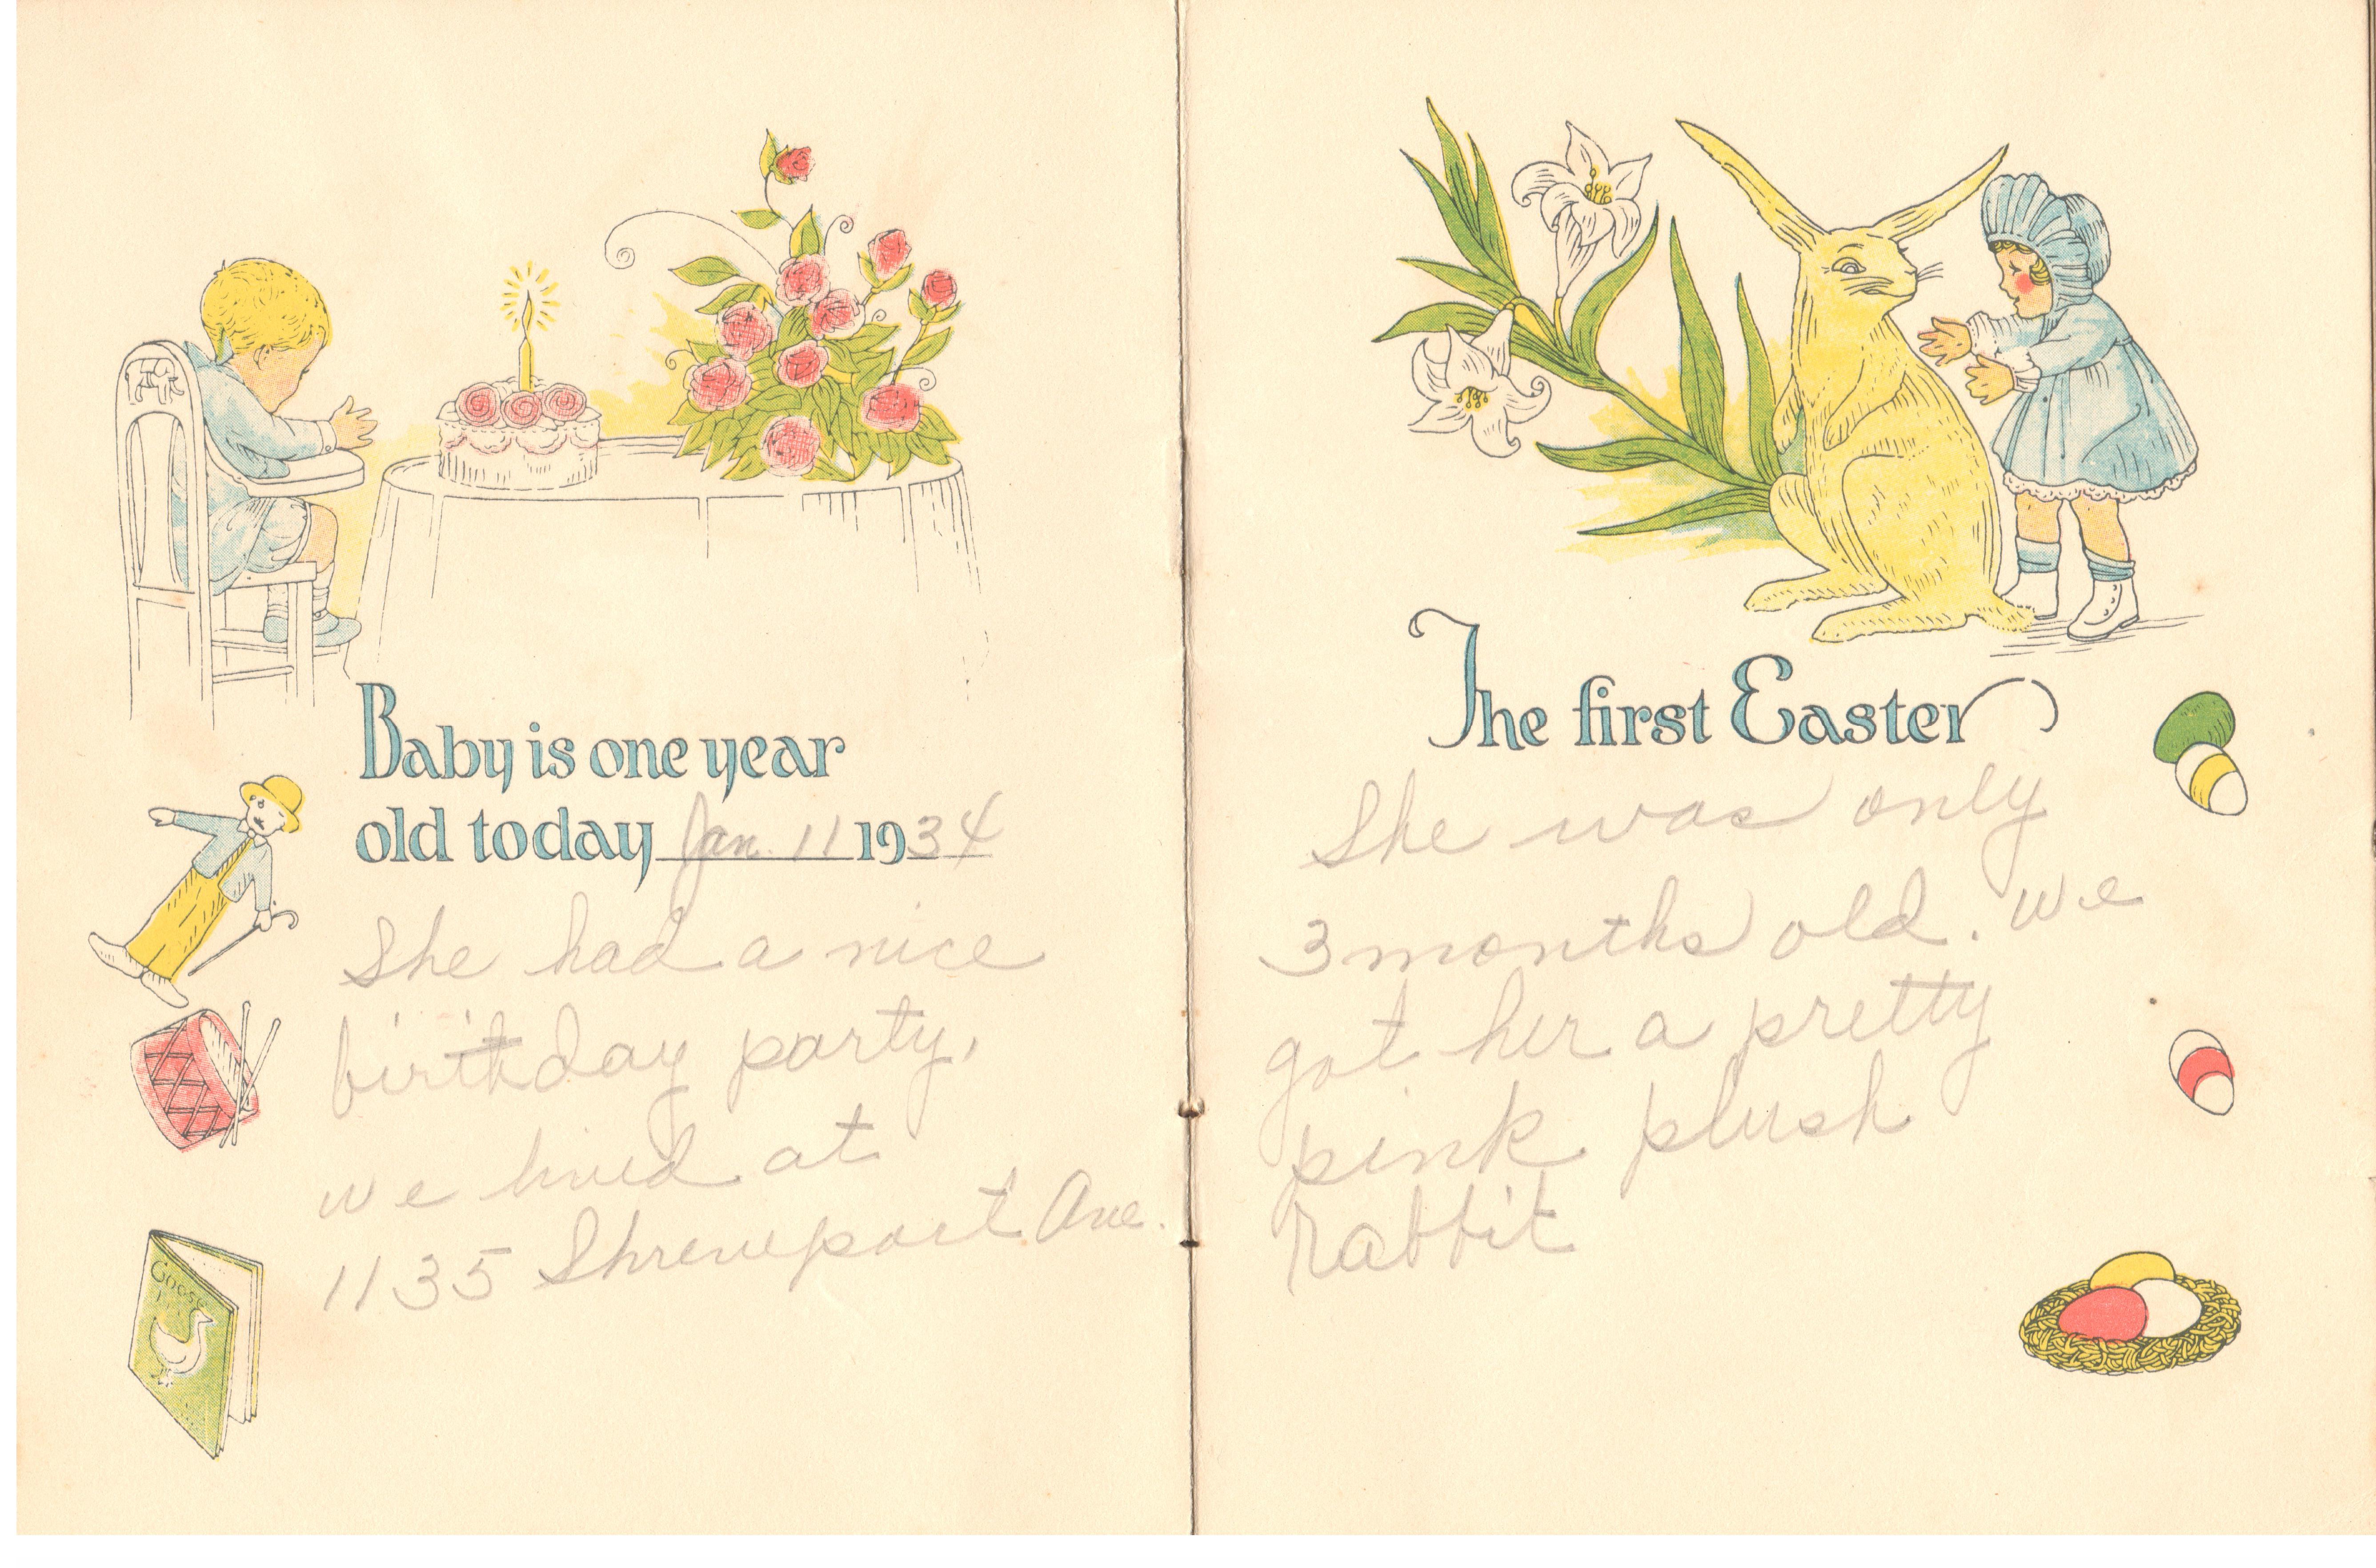 Baby is one year
old today Jan. 11 1934
She had a nice
birthday party,
we lived at
1135 Shreveport Ave.
Goose
The first Easter
She was only
3 months old. we
got her a pretty
pink plush
rabbit